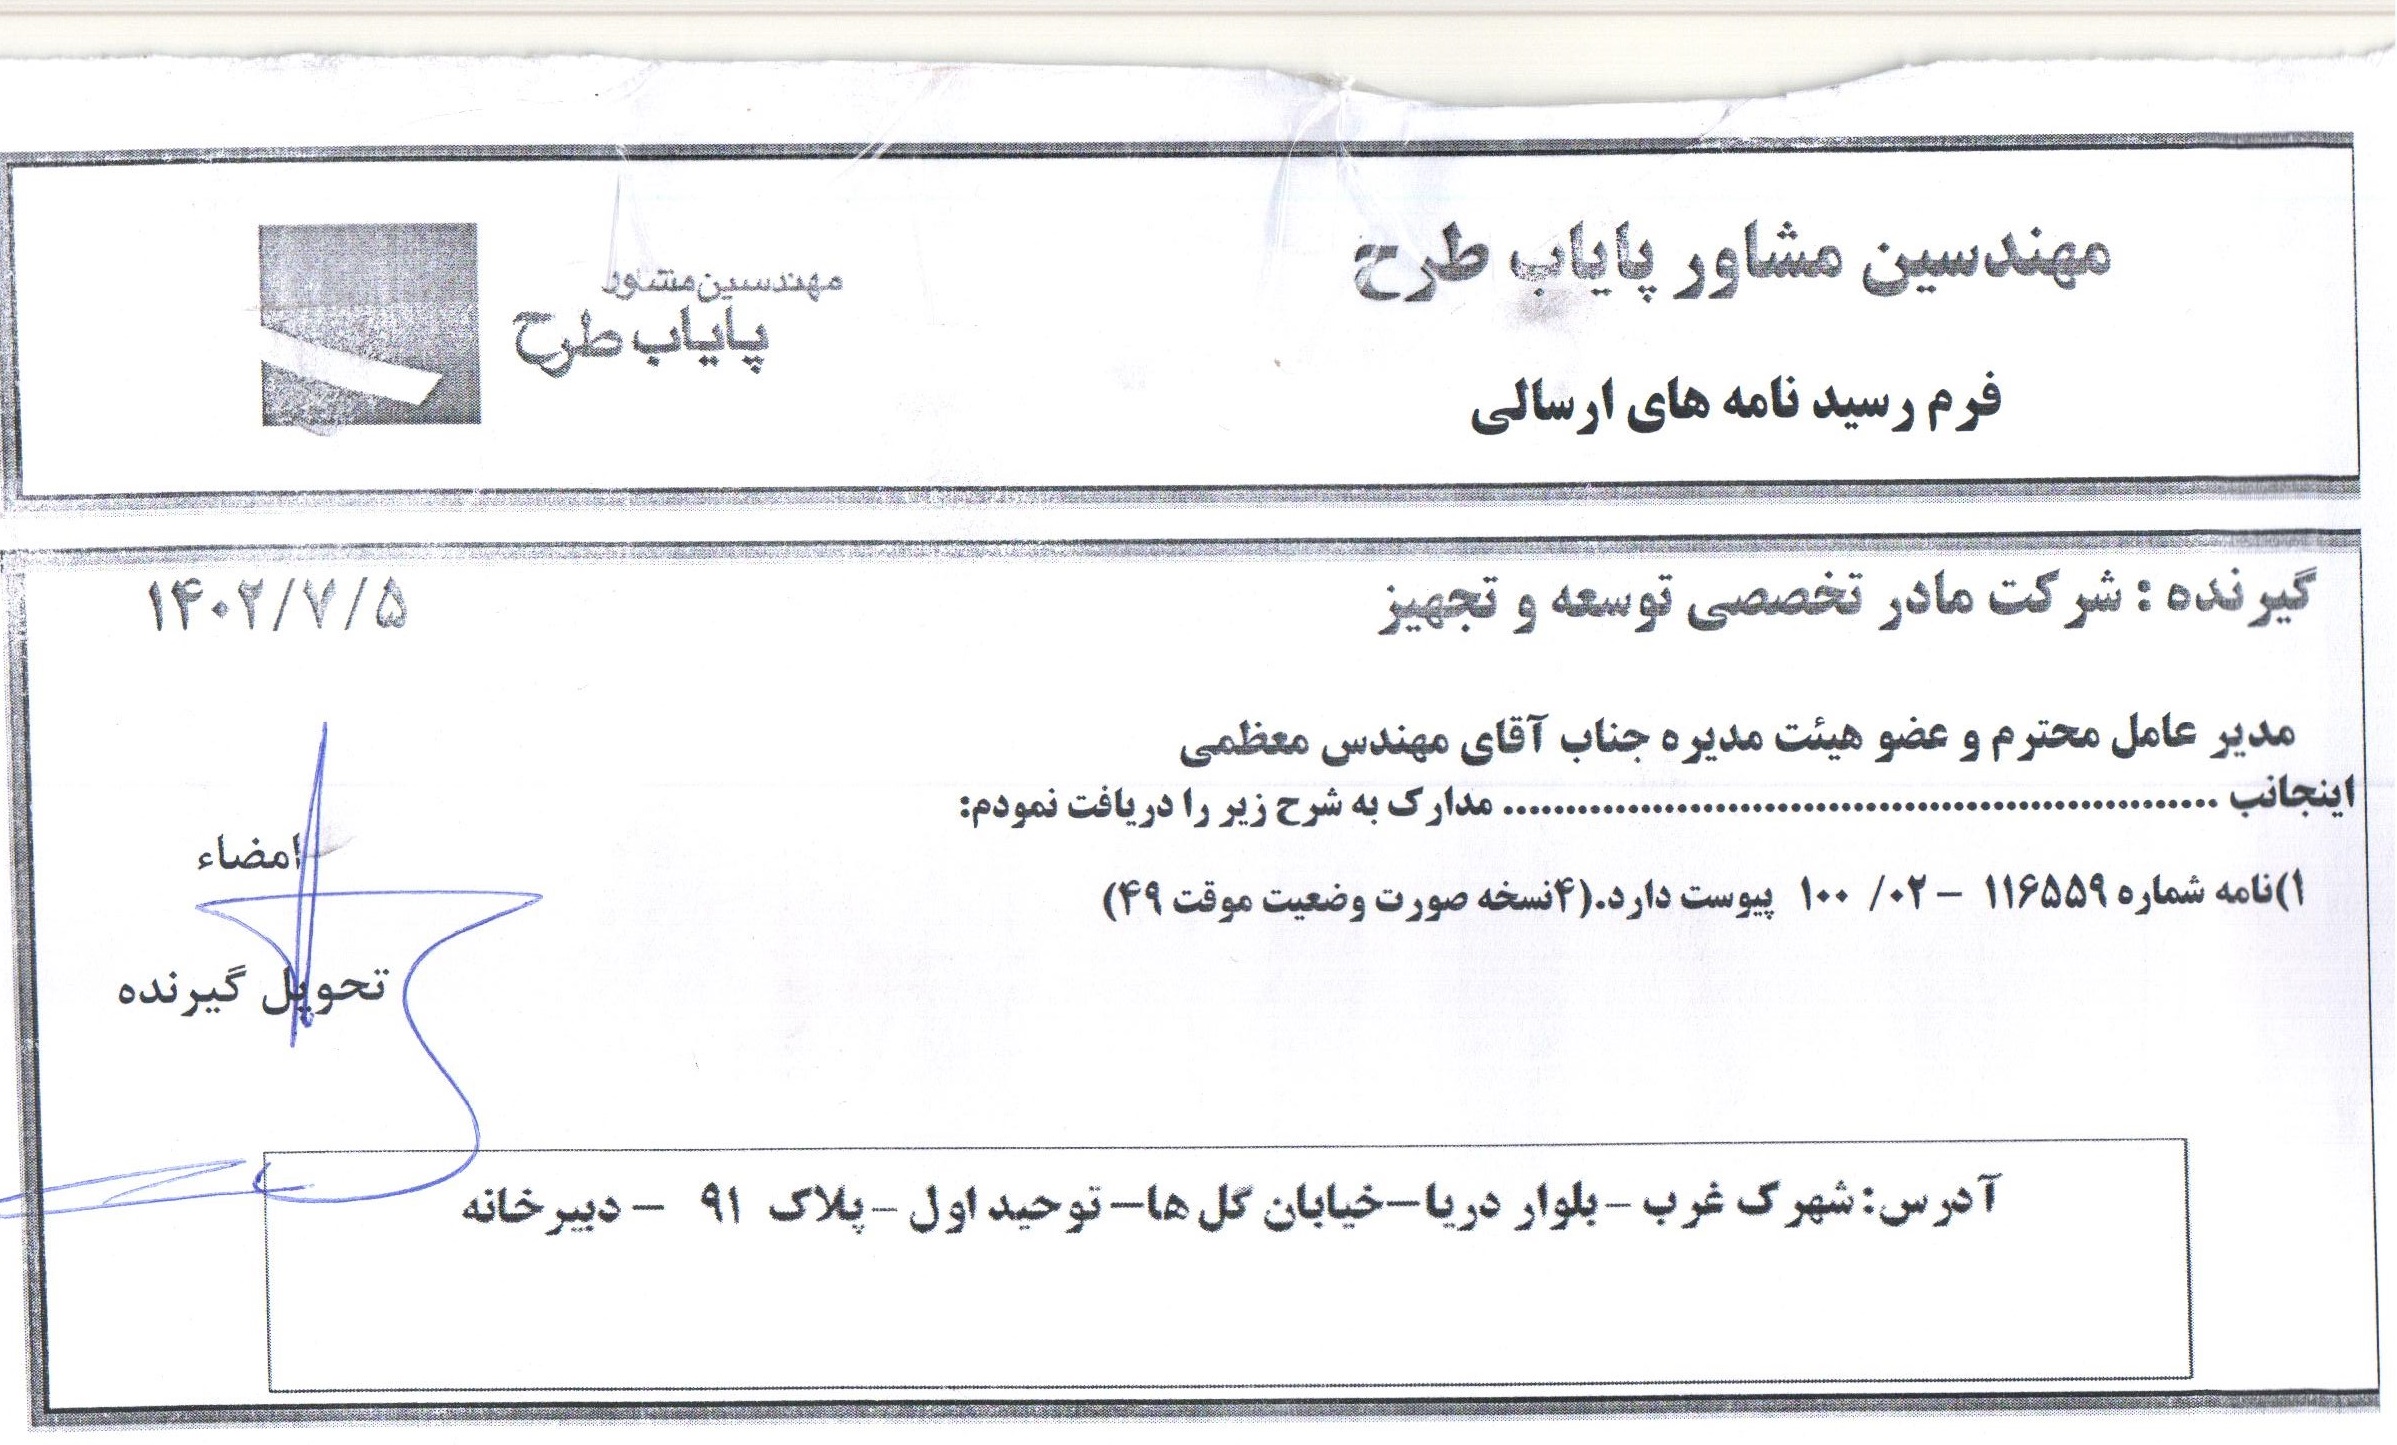 مهندسین مشاور پایاب طرح
مهندسین مشاور
پایاب طرح
فرم رسید نامه های ارسالی
گیرنده : شرکت مادر تخصصی توسعه و تجهیز
۱۴۰۲/۷/۵
مدیر عامل محترم و عضو هیئت مدیره جناب آقای مهندس معظمی
اینجانب ........................................................ مدارک به شرح زیر را دریافت نمودم:
امضاء
۱)نامه شماره ۱۱۶۵۵۹ – ۰۲/ ۱۰۰ پیوست دارد.(۴نسخه صورت وضعیت موقت ۴۹)
تحویل گیرنده
آدرس: شهرک غرب – بلوار دریا–خیابان گل ها– توحید اول –پلاک ۹۱ – دبیرخانه